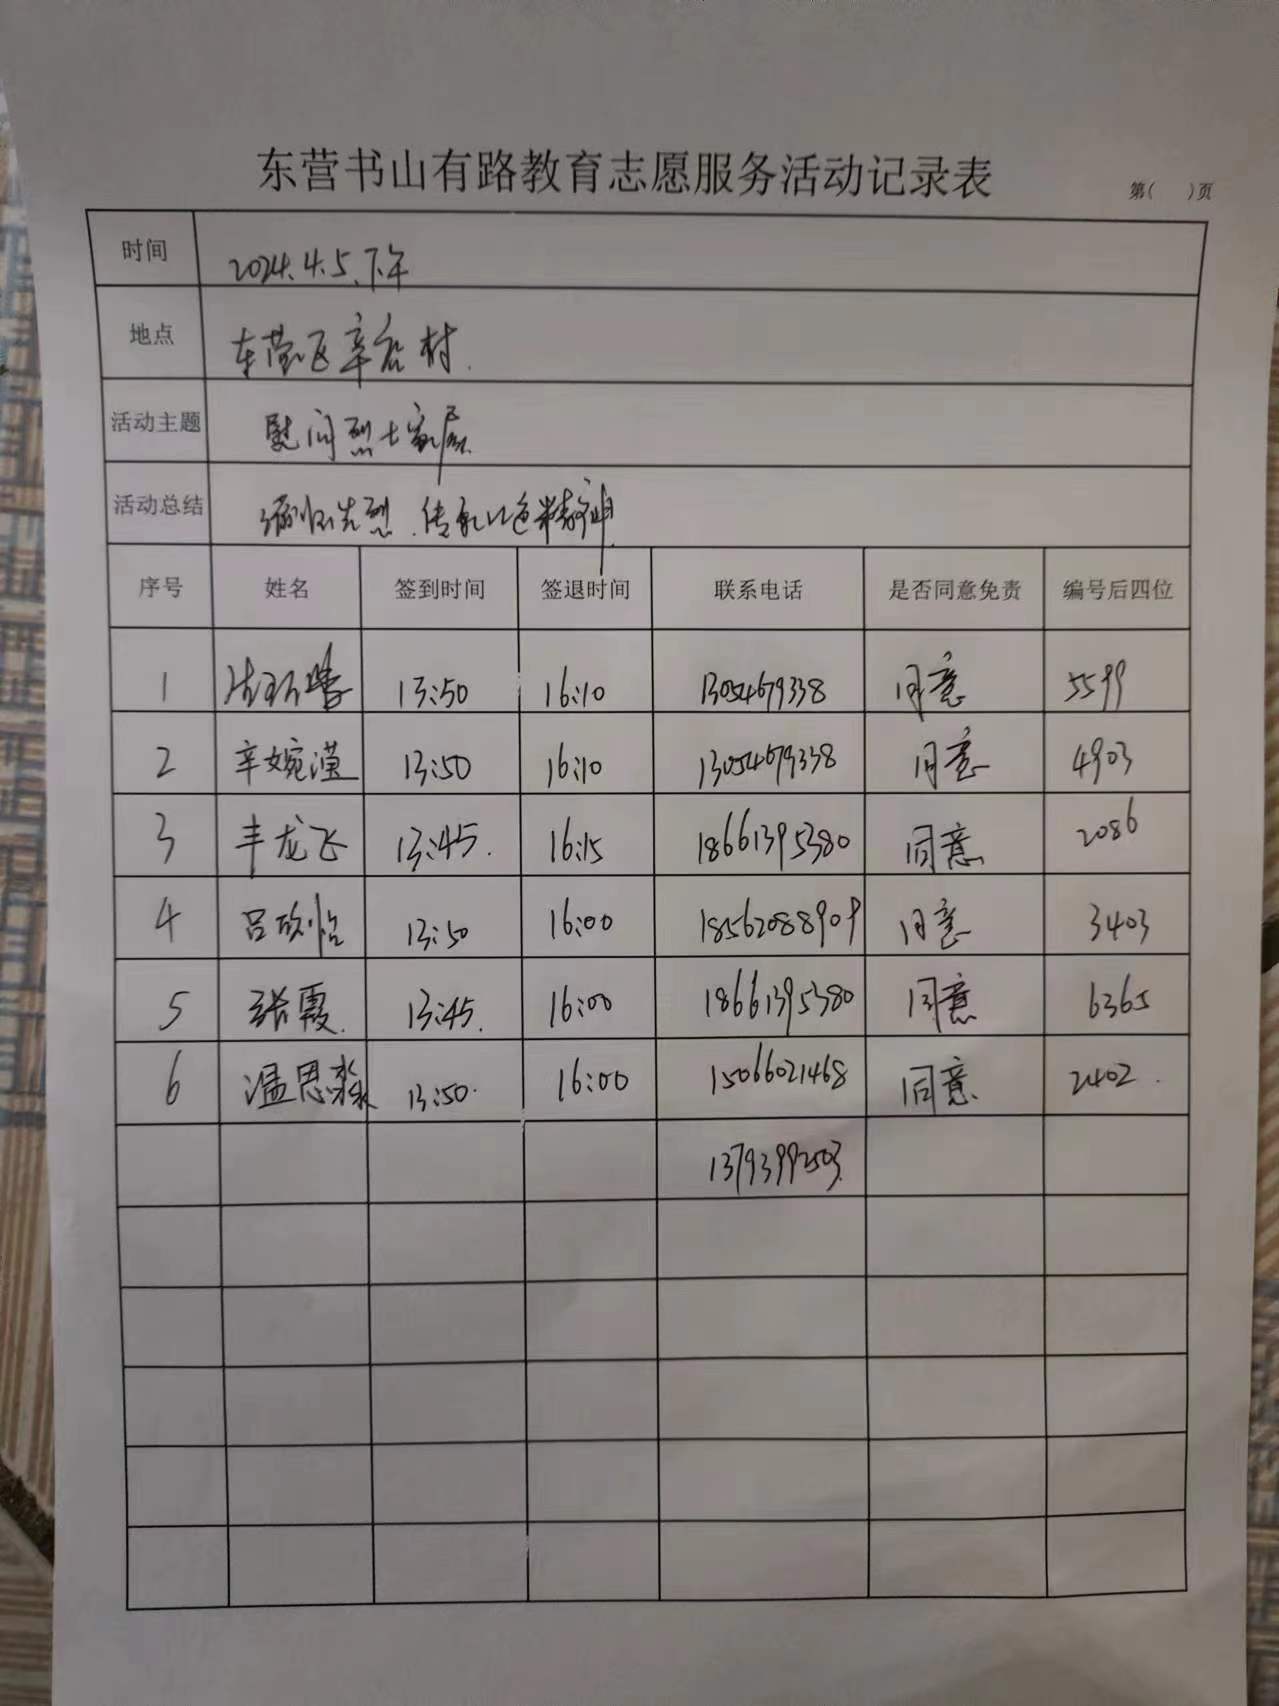 东营书山有路教育志愿服务活动记录表
第( )页
时间 2024.4.5.下午
地点 东营区辛店村.
活动主题 慰问烈士家属.
活动总结 缅怀先烈.传承红色精神.
序号 姓名 签到时间 签退时间 联系电话 是否同意免责 编号后四位
1 13:50 16:10 13054679338 同意 5599
2 辛婉滢 13:50 16:10 13054679338 同意 4903
3 丰龙飞 13:45. 16:15 18661395380 同意 2086
4 吕欣怡 13:50 16:00 18562088909 同意 3403
5 张霞. 13:45. 16:00 18661395380 同意 6365
6 温思淼 13:50. 16:00 15066021468 同意 2402.
13793992503.